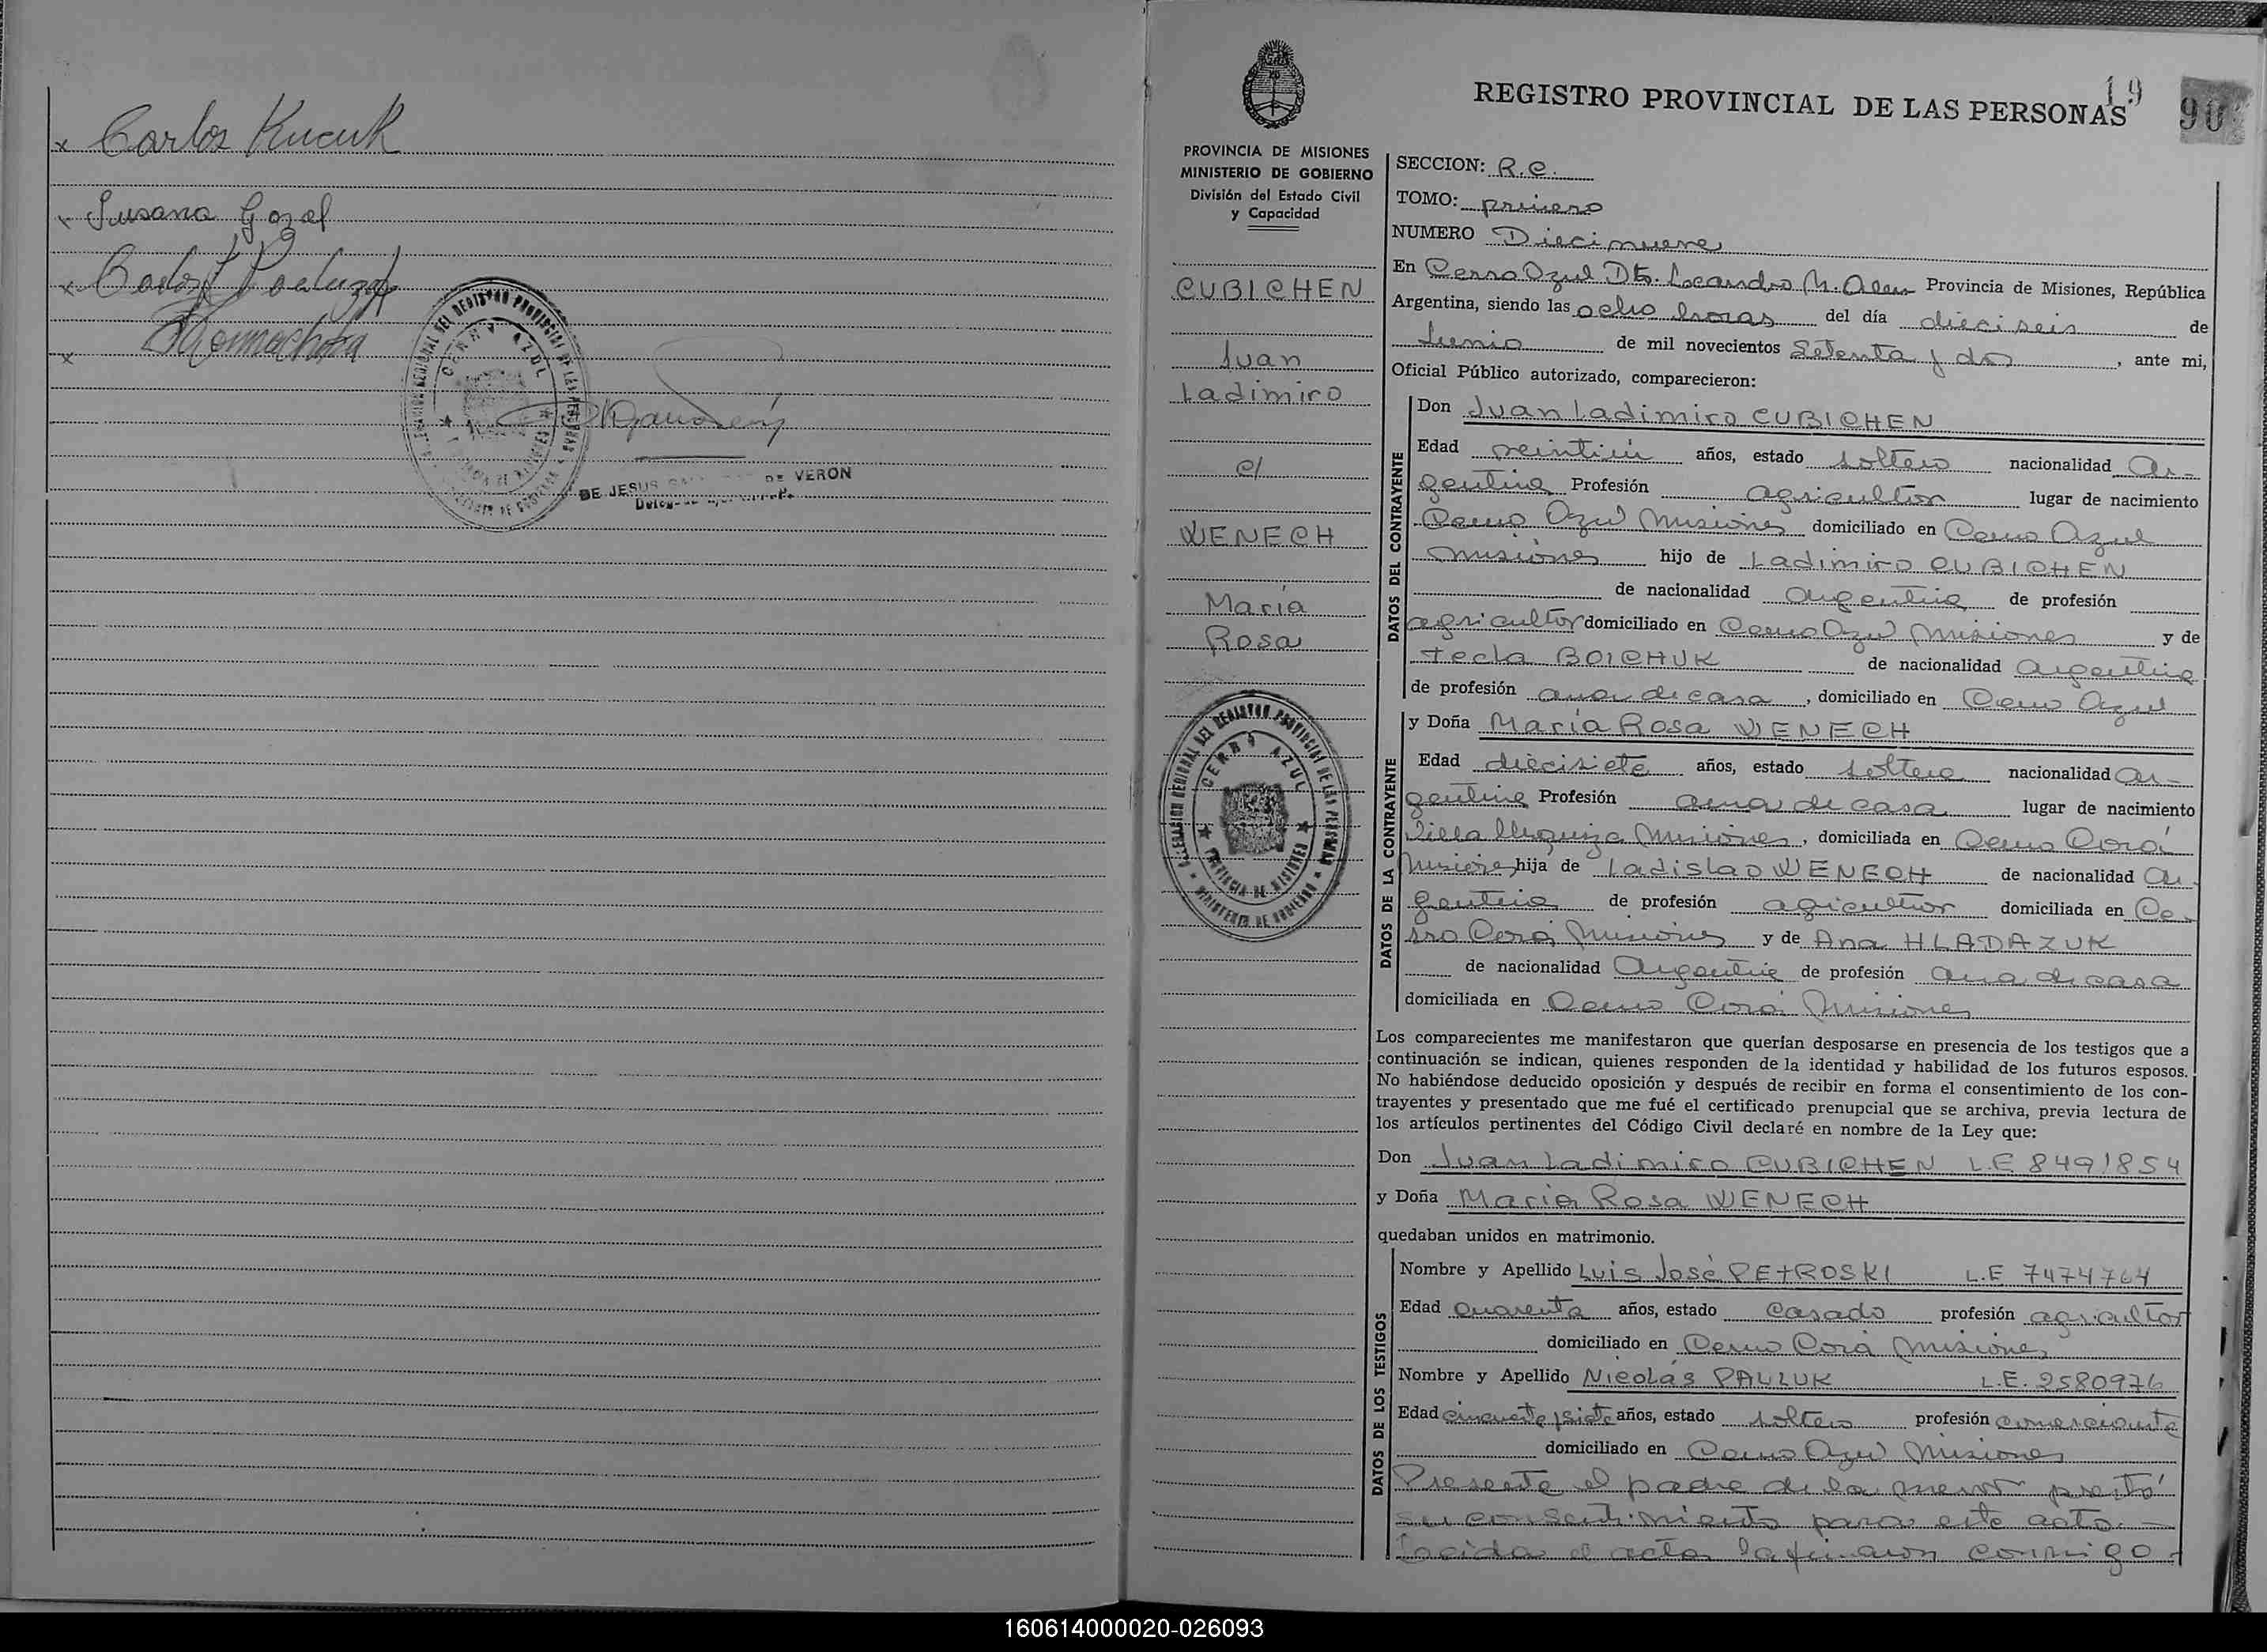 x Carlos Kucuk
x Susana Gozal
x Carlos
x
DELEGACION REGIONAL DEL REGISTRO PROVINCIAL DE LAS PERSONAS
CERRO AZUL
DE JESUS DE VERON
19
90
REGISTRO PROVINCIAL DE LAS PERSONAS
PROVINCIA DE MISIONES
MINISTERIO DE GOBIERNO
División del Estado Civil
y Capacidad
CUBICHEN
Juan
Ladimiro
c/
WENECH
María
Rosa
DELEGACION REGIONAL DEL REGISTRO PROVINCIAL DE LAS PERSONAS
CERRO AZUL
PROVINCIA DE MISIONES
MINISTERIO DE GOBIERNO
SECCION: R.C.
TOMO: primero
NUMERO Diecinueve
En Cerro Azul Dto. Leandro N. Alem Provincia de Misiones, República
Argentina, siendo las ocho horas del día dieciseis de
Junio de mil novecientos Setenta y dos, ante mi,
Oficial Público autorizado, comparecieron:
DATOS DEL CONTRAYENTE
Don Juan Ladimiro CUBICHEN
Edad veintiún años, estado soltero nacionalidad Ar-
gentina Profesión agricultor lugar de nacimiento
Cerro Azul Misiones domiciliado en Cerro Azul
Misiones hijo de Ladimiro CUBICHEN
de nacionalidad Argentina de profesión
agricultor domiciliado en Cerro Azul Misiones y de
Tecla BOICHUK de nacionalidad Argentina
de profesión ama de casa, domiciliado en Cerro Azul
DATOS DE LA CONTRAYENTE
y Doña María Rosa WENECH
Edad diecisiete años, estado soltera nacionalidad Ar-
gentina Profesión ama de casa lugar de nacimiento
Villa Urquiza Misiones, domiciliada en Cerro Corá
Misiones hija de Ladislao WENECH de nacionalidad Ar-
gentina de profesión agricultor domiciliada en Ce-
rro Corá Misiones y de Ana HLADAZUK
de nacionalidad Argentina de profesión ama de casa
domiciliada en Cerro Corá Misiones
Los comparecientes me manifestaron que querían desposarse en presencia de los testigos que a
continuación se indican, quienes responden de la identidad y habilidad de los futuros esposos.
No habiéndose deducido oposición y después de recibir en forma el consentimiento de los con-
trayentes y presentado que me fué el certificado prenupcial que se archiva, previa lectura de
los artículos pertinentes del Código Civil declaré en nombre de la Ley que:
Don Juan Ladimiro CUBICHEN L.E 8491854
y Doña María Rosa WENECH
quedaban unidos en matrimonio.
DATOS DE LOS TESTIGOS
Nombre y Apellido Luis José PETROSKI L.E 7474764
Edad cuarenta años, estado casado profesión agricultor
domiciliado en Cerro Corá Misiones
Nombre y Apellido Nicolás PALLUK L.E. 2580976
Edad cincuenta y siete años, estado soltero profesión comerciante
domiciliado en Cerro Azul Misiones
Presente el padre de la menor prestó
su consentimiento para este acto. -
Leída el acta la firmaron conmigo.-
160614000020-026093